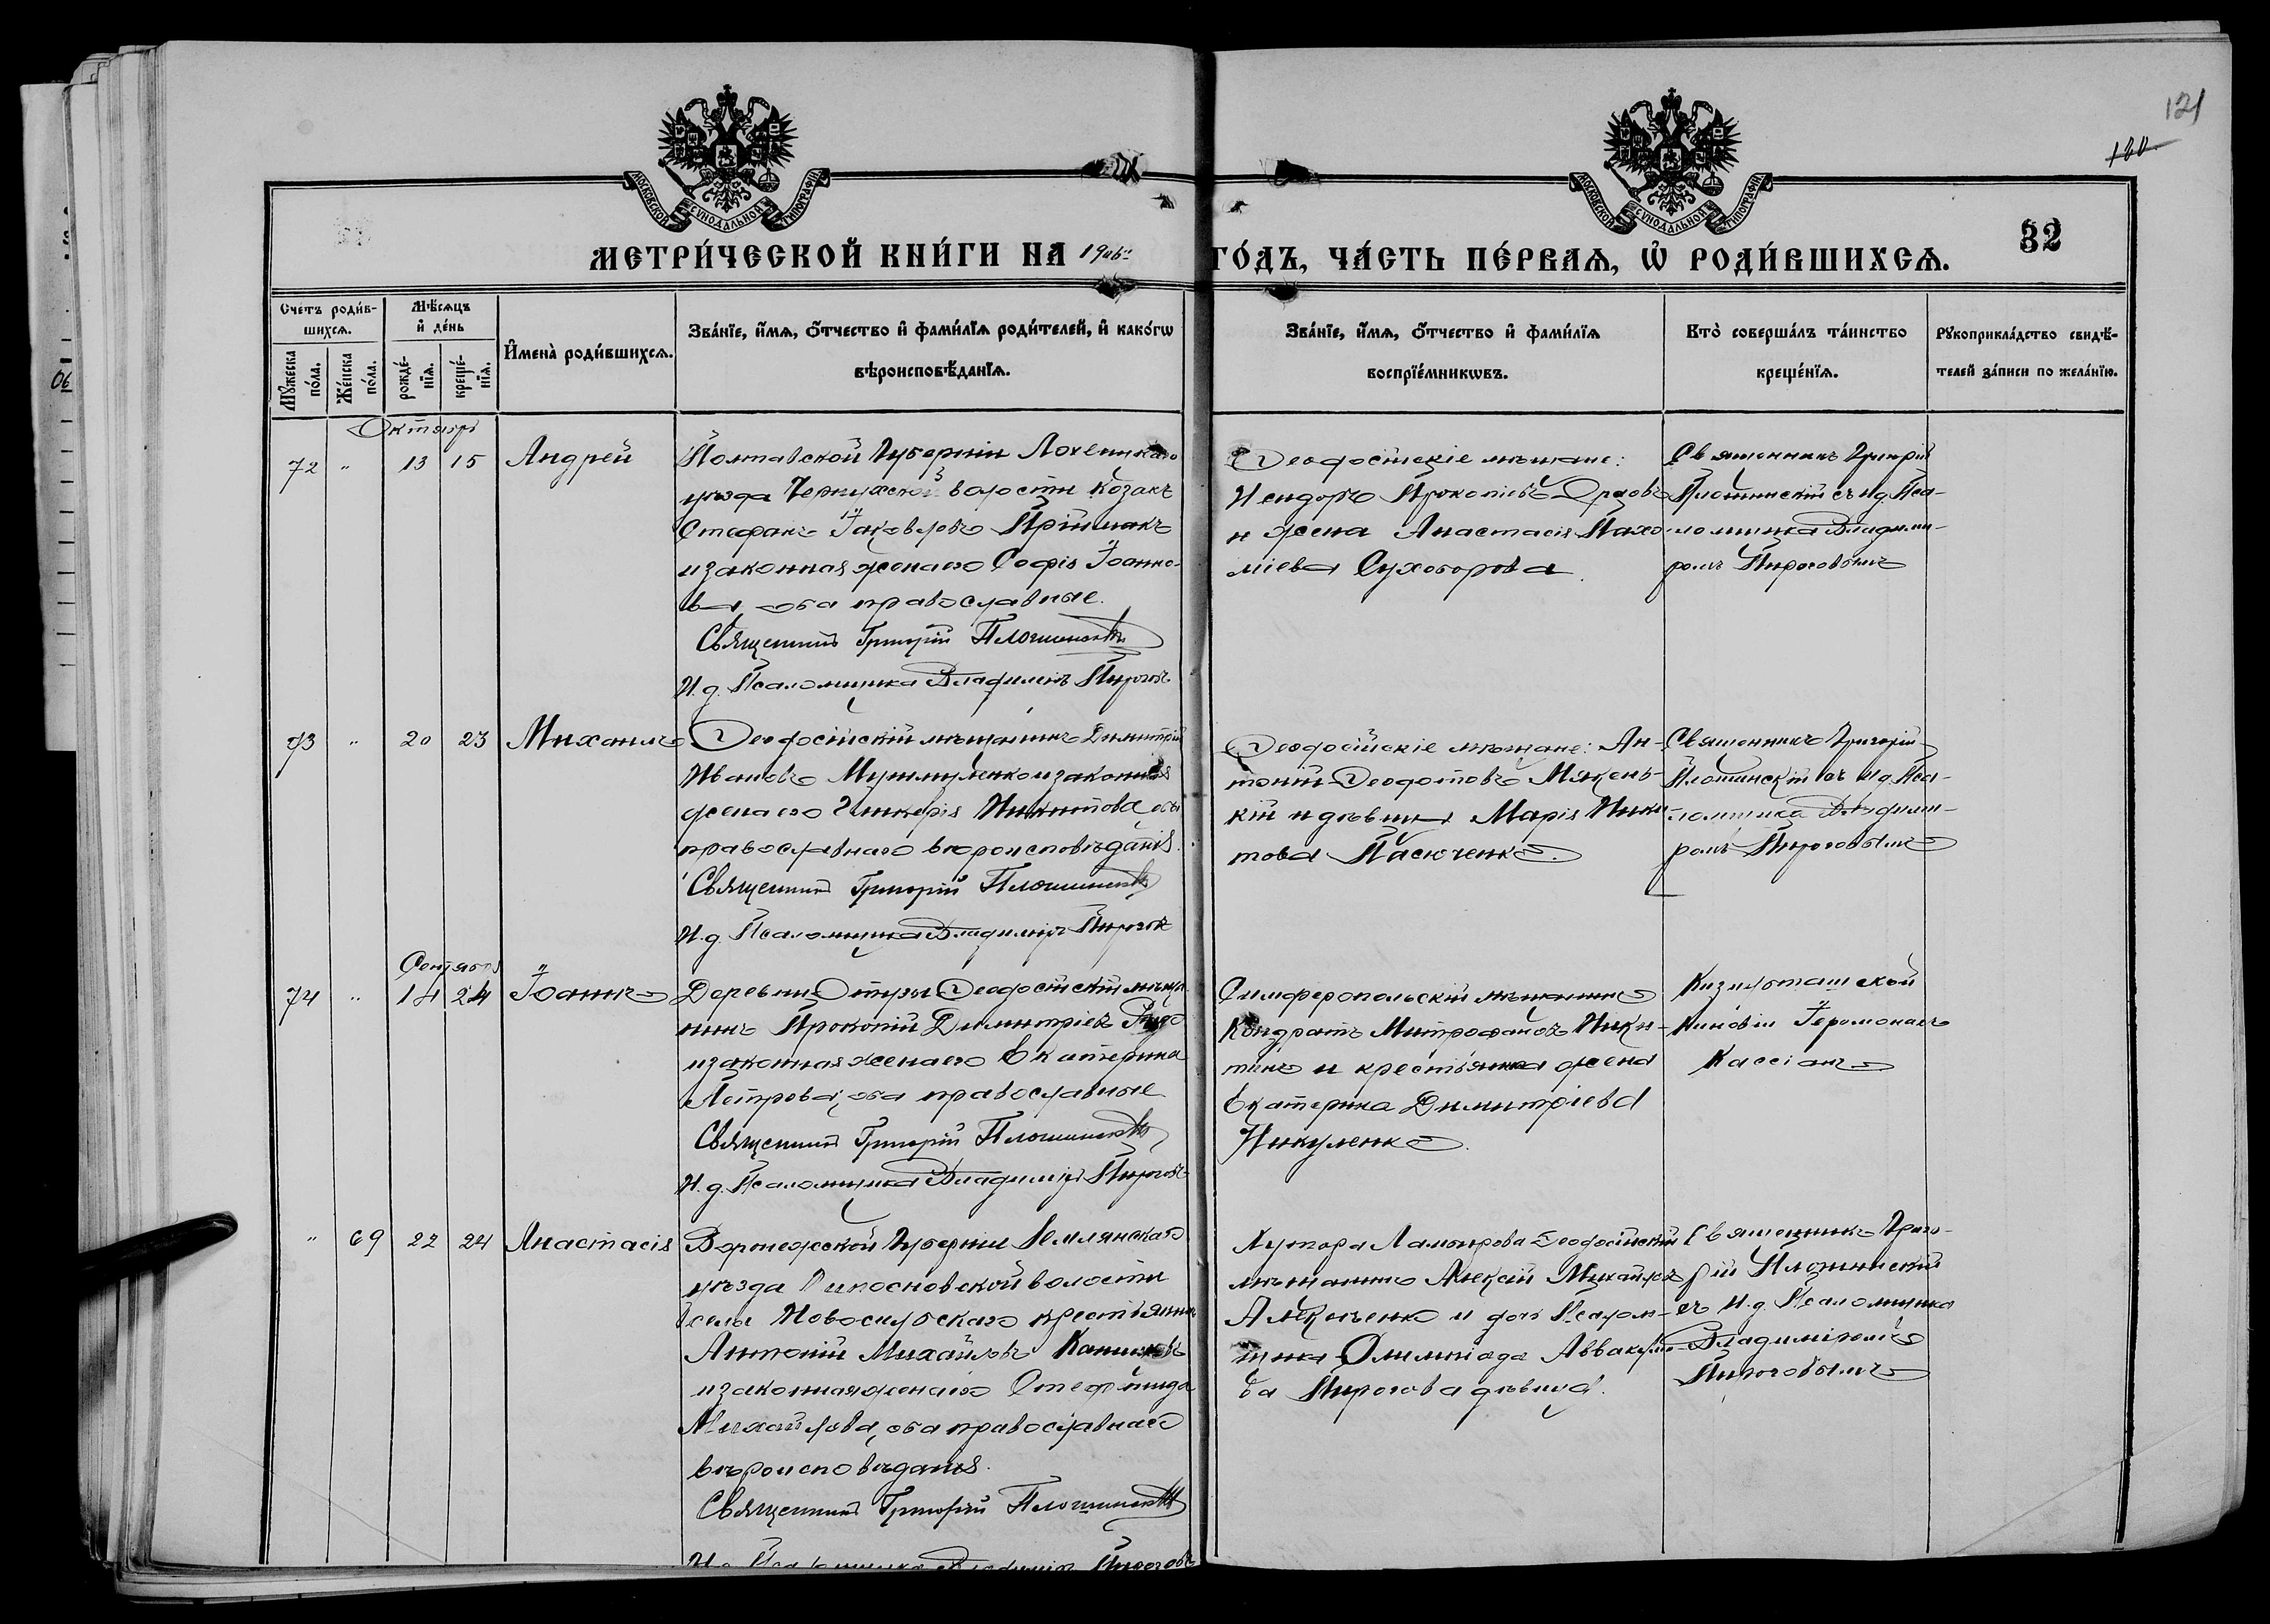 121
120
МОСКОВСКОЙ СѴНОДАЛЬНОЙ ТИПОГРАФІИ
МОСКОВСКОЙ СѴНОДАЛЬНОЙ ТИПОГРАФІИ
32
МЕТРИ́ЧЕСКОЙ КНИ́ГИ НА 1906 ГО́ДЪ, ЧА́СТЬ ПЕ́РВАѦ, Ѡ҆ РОДИ́ВШИХСѦ.
Счетъ роди́в-
шихсѧ.
Мꙋ́жеска по́ла.
Же́нска по́ла.
Мѣ́сѧцъ
и҆ де́нь
рожде́-нїѧ.
креще́-нїѧ.
И҆мена̀ роди́вшихсѧ.
Зва́нїе, и҆́мѧ, ѻ҆́тчество и҆ фами́лїѧ роди́телей, и҆ како́гѡ
вѣроисповѣ́данїѧ.
Зва́нїе, и҆́мѧ, ѻ҆́тчество и҆ фами́лїѧ
воспрїе́мникѡвъ.
Кто̀ соверша́лъ та́инство
креще́нїѧ.
Рꙋкоприкла́дство свидѣ́-
телей за́писи по жела́нїю.
Октябрь
72 " 13 15 Андрей
Полтавской Губерніи Лохвицкаго
уѣзда Чернухской волости козакъ
Стефанъ Іаковлевъ Пріймакъ
и законная жена его Софія Іоанно-
ва, оба православные.
Священникъ Григорій Плошинскій
И. д. Псаломщика Владиміръ Пироговъ
Ѳеодосійскіе мѣщане:
Исидоръ Прокопіевъ
и жена Анастасія Пахо-
міева Сухоборова.
Священникъ Григорій
Плошинскій съ и. д. Пса-
ломщика Владимі-
ромъ Пироговымъ
73 " 20 23 Михаилъ
Ѳеодосійскій мѣщанинъ Димитрій
Ивановъ и законная
жена его Гликерія Никитова, оба
православнаго вѣроисповѣданія.
Священникъ Григорій Плошинскій
И. д. Псаломщика Владиміръ Пироговъ
Ѳеодосійскіе мѣщане: Ан-
тоній Ѳеодотовъ Мякень-
кій и дѣвица Марія Ники-
това Пасюченко.
Священникъ Григорій
Плошинскій съ и. д. Пса-
ломщика Владимі-
ромъ Пироговымъ
Сентябрь
74 " 14 24 Іоаннъ
Деревни Отузы Ѳеодосійскій мѣща-
нинъ Прокопій Димитріевъ
и законная жена его Екатерина
Петрова, оба православные
Священникъ Григорій Плошинскій
И. д. Псаломщика Владиміръ Пироговъ
Симферопольскій мѣщанинъ
Кондратъ Митрофановъ Ники-
тинъ и крестьянка жена
Екатерина Димитріева
Никуленко.
Кизилташской
Киновіи Іеромонахъ
Кассіанъ
" 69 22 24 Анастасія
Воронежской Губерніи Землянскаго
уѣзда волости
села Новосильскаго крестьянинъ
Антоній Михайловъ
и законная жена его Стефанида
Михайлова, оба православнаго
вѣроисповѣданія.
Священникъ Григорій Плошинскій
И. д. Псаломщика Владиміръ Пироговъ
Хутора Ѳеодосійскій
мѣщанинъ Алексій Михайловъ
и дочь Псалом-
щика Олимпіада Аввакумо-
ва Пирогова дѣвица.
Священникъ Григо-
рій Плошинскій
съ и. д. Псаломщика
Владиміромъ
Пироговымъ
06